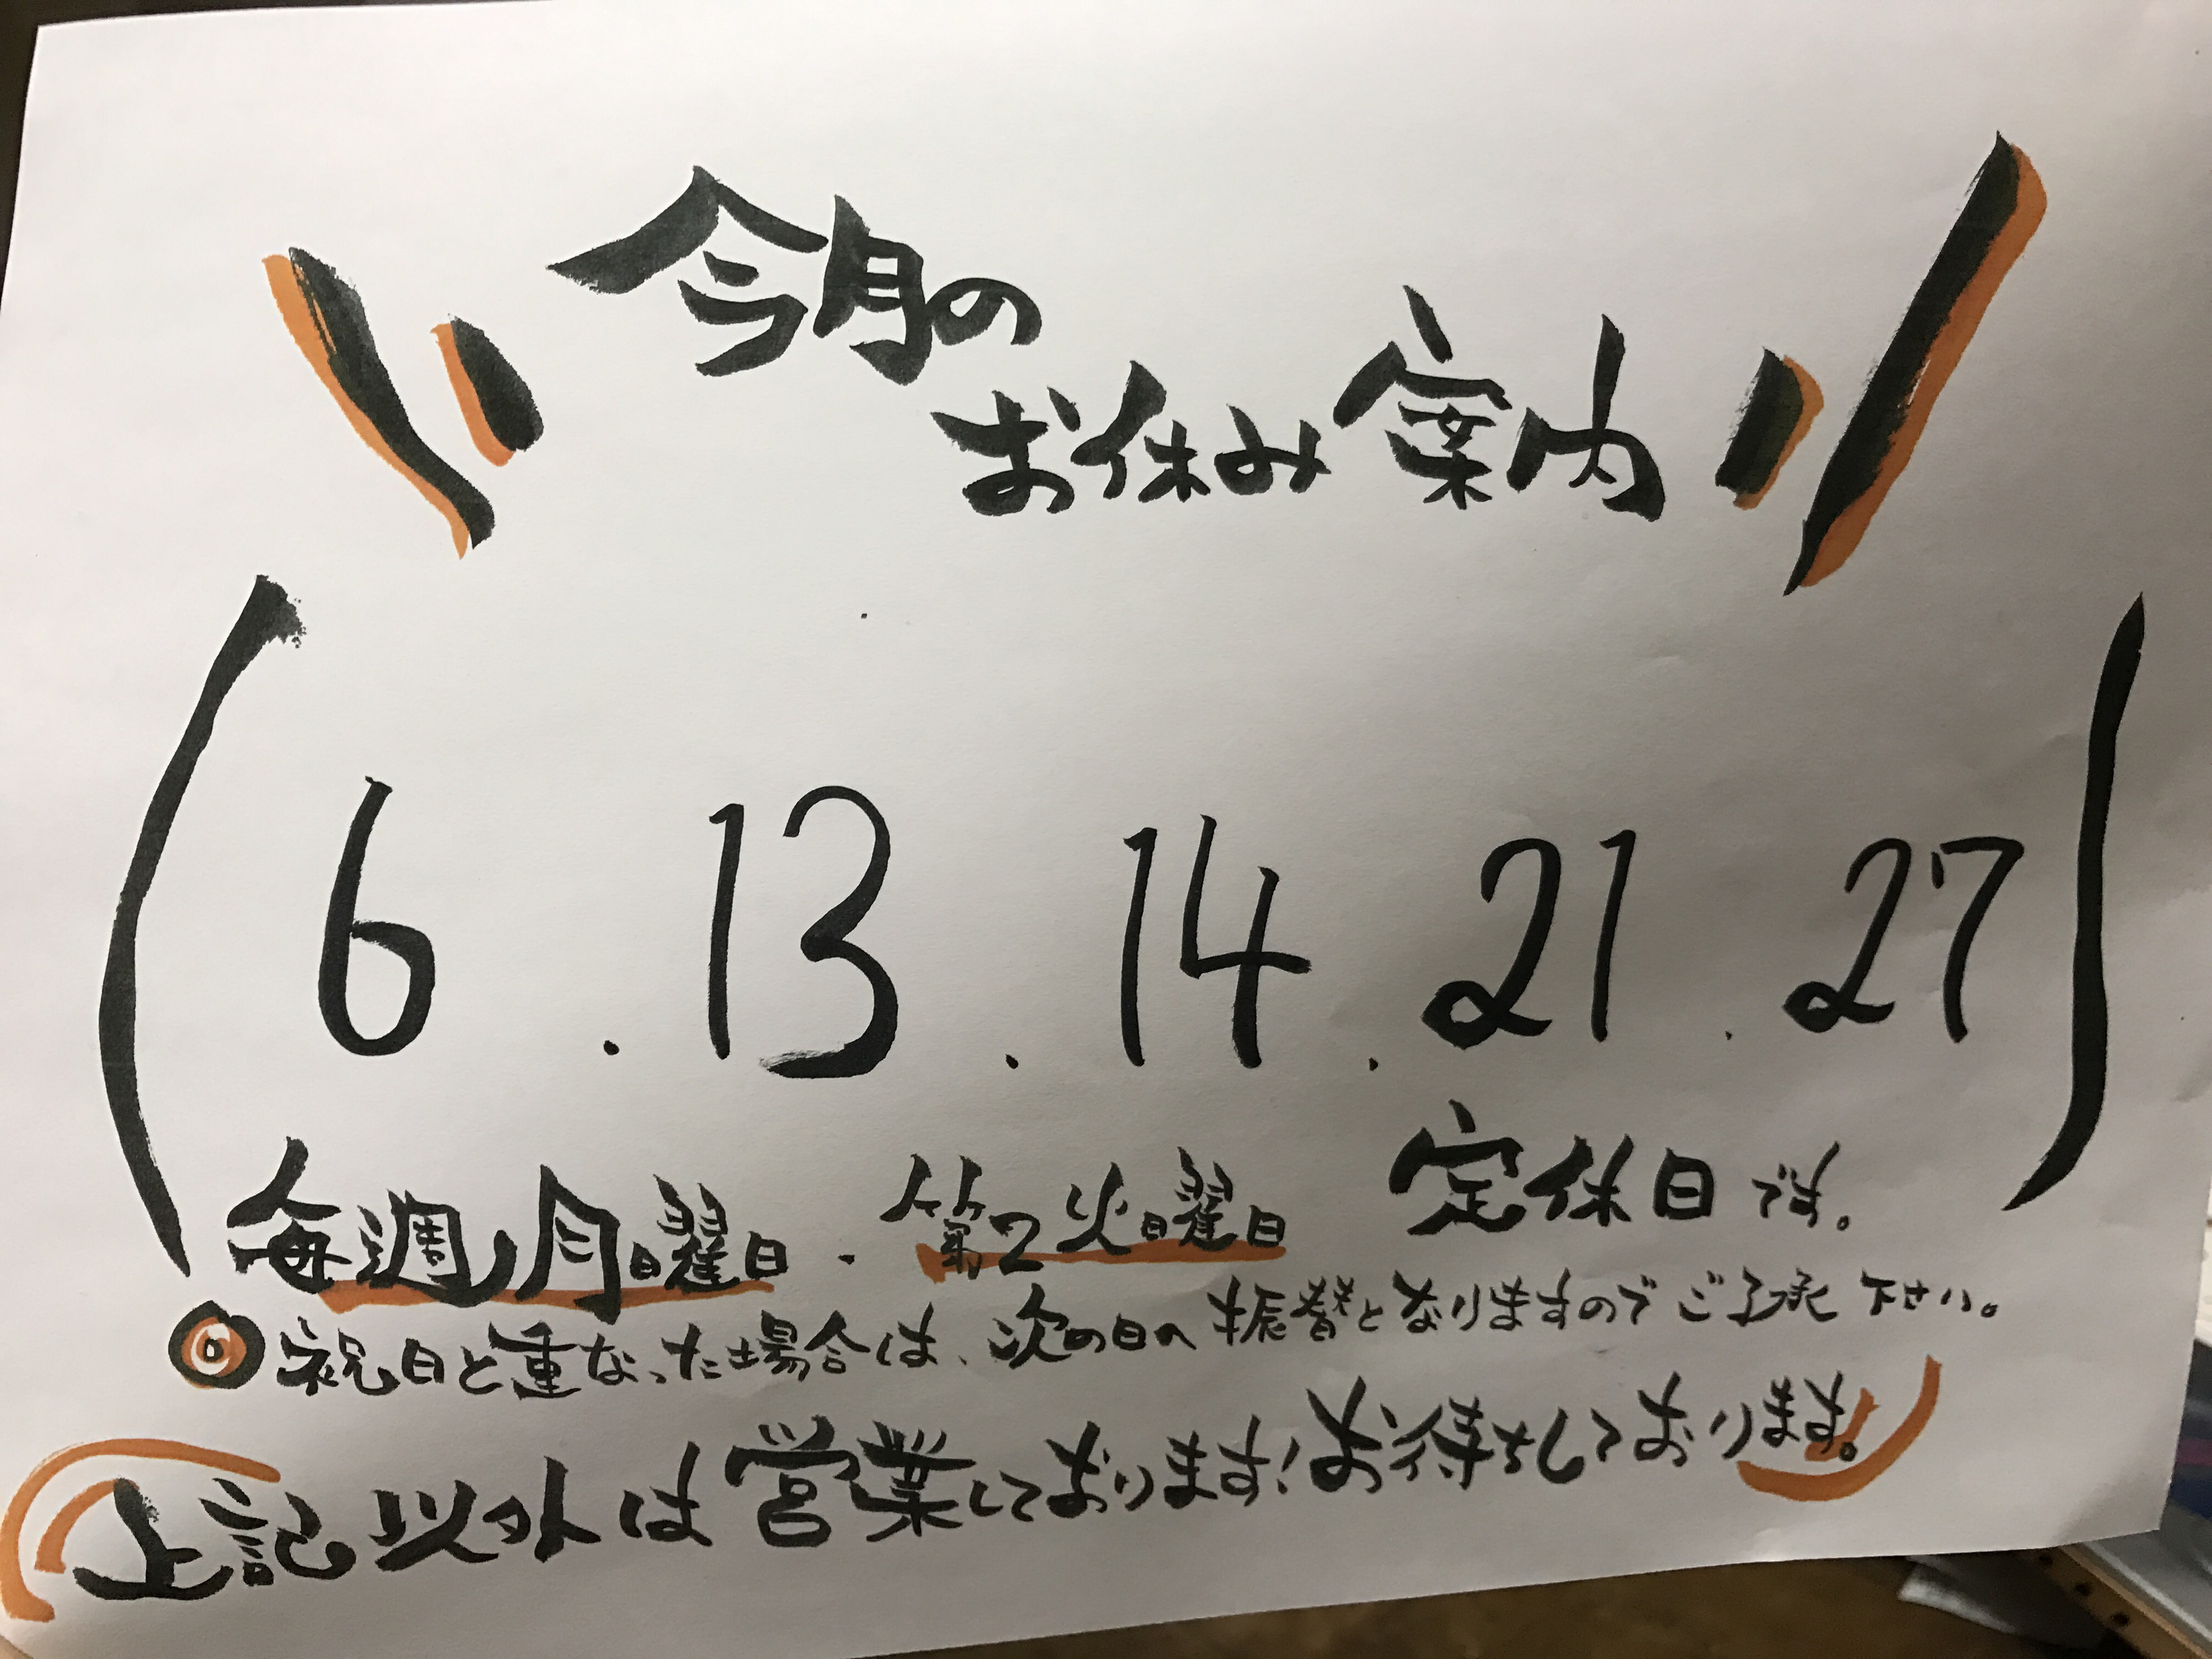 今月の
お休み案内
(6.13.14.21.27)
毎週月曜日・第2火曜日 定休日です。
◎祝日と重なった場合は、次の日へ振替となりますのでご了承下さい。
上記以外は営業しております!お待ちしております。